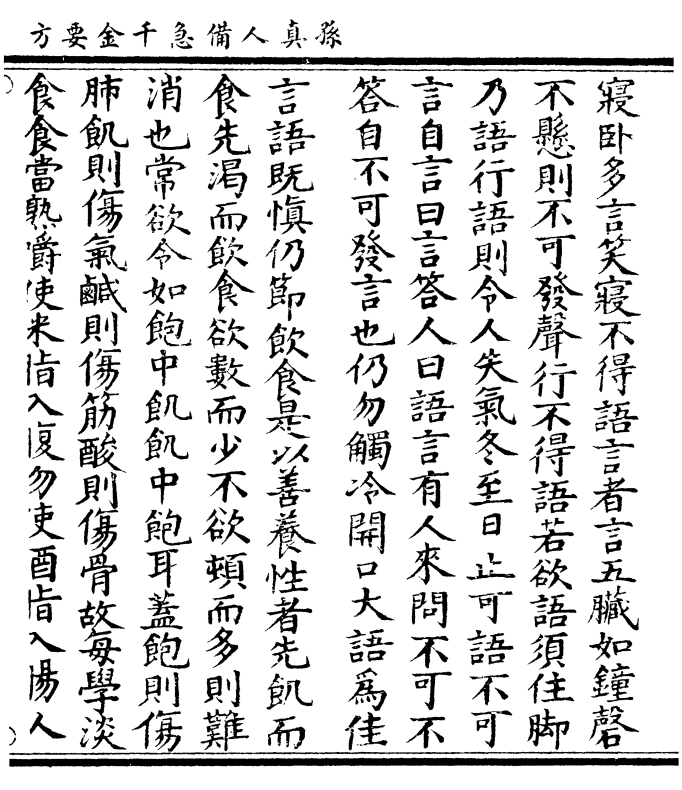 孫真人備急千金要方
寢卧多言笑寢不得語言者言五臟如鐘磬
不懸則不可發聲行不得語若欲語須住脚
乃語行語則令人失氣冬至日止可語不可
言自言曰言答人曰語言有人來問不可不
答自不可發言也仍勿觸冷開口大語為佳
言語既慎仍節飲食是以善養性者先飢而
食先渴而飲食欲數而少不欲頓而多則難
消也常欲令如飽中飢飢中飽耳蓋飽則傷
肺飢則傷氣鹹則傷筋酸則傷骨故每學淡
食食當熟嚼使米脂入腹勿使酒脂入腸人